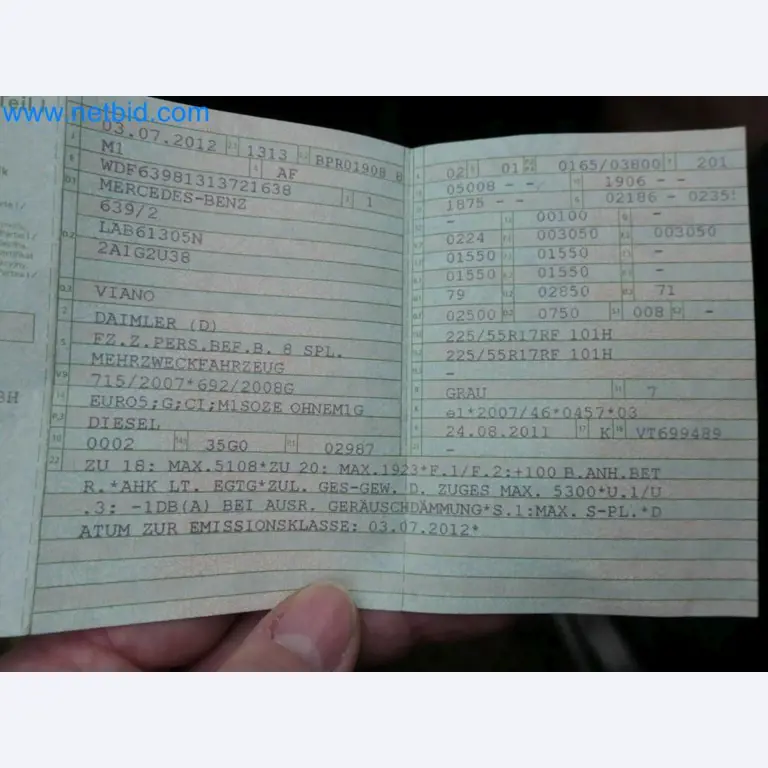 www.netbid.com
03.07.2012 2.1 1313 2.2 BPR0190B 8
M1 AF
WDF63981313721638 1
MERCEDES-BENZ
639/2
LAB61305N
2A1G2U38
VIANO
DAIMLER (D)
FZ.Z.PERS.BEF.B. 8 SPL.
MEHRZWECKFAHRZEUG
715/2007*692/2008G
EURO5;G;CI;M1SOZE OHNEM1G
DIESEL
0002 35G0 02987
02 01 0165/03800 201
05008 - - 1906 - -
1875 - - 02186 - 0235
- 00100 -
0224 003050 003050
01550 01550 -
01550 01550 -
79 02850 71
02500 0750 008 -
225/55R17RF 101H
225/55R17RF 101H
-
GRAU 7
e1*2007/46*0457*03
24.08.2011 K VT699489
-
22 ZU 18: MAX.5108*ZU 20: MAX.1923*F.1/F.2:+100 B.ANH.BET
R.*AHK LT. EGTG*ZUL. GES-GEW. D. ZUGES MAX. 5300*U.1/U
.3: -1DB(A) BEI AUSR. GERÄUSCHDÄMMUNG*S.1:MAX. S-PL.*D
ATUM ZUR EMISSIONSKLASSE: 03.07.2012*